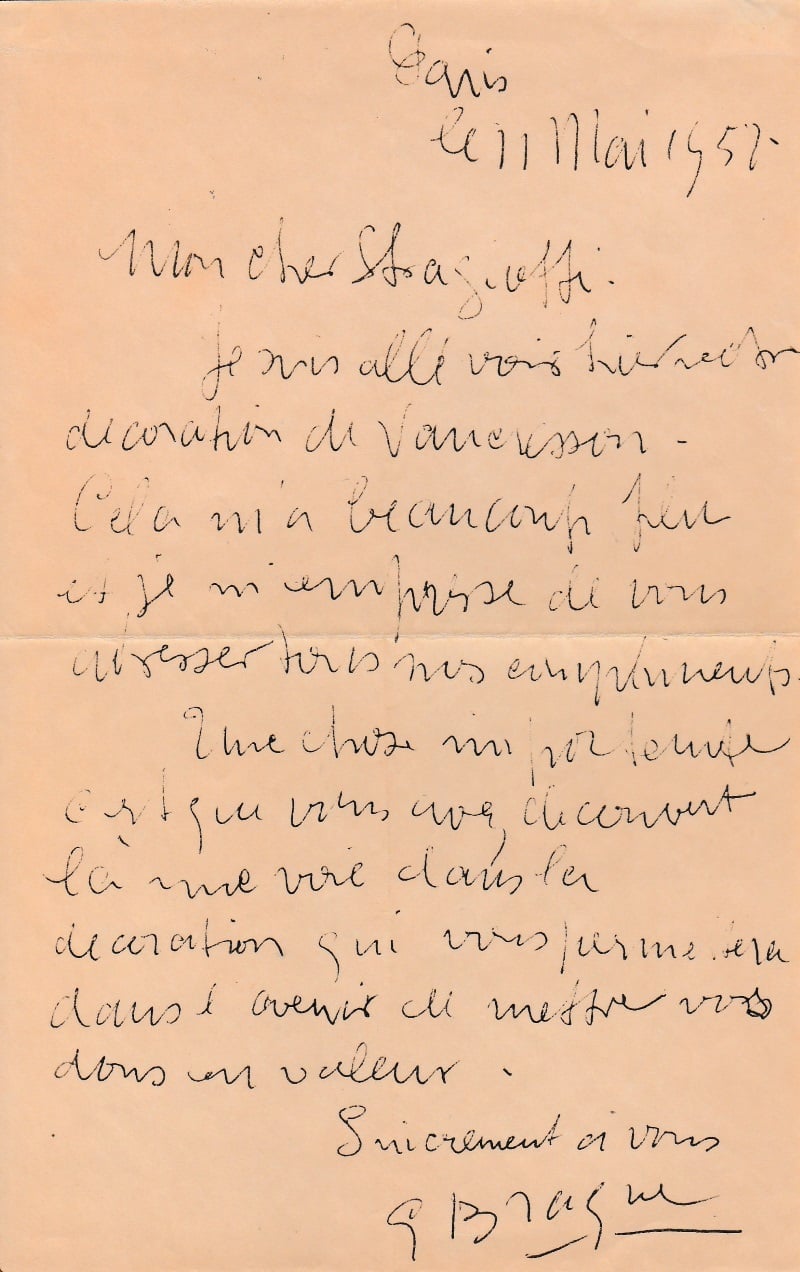 Paris
le 11 Mai 1957
Mon cher
Je suis allé voir hier votre
decoration de Vaucresson -
Cela m'a beaucoup plu
et je m'empresse de vous
adresser tous mes compliments.
Une chose importante
c'est que vous avez decouvert
là une voie dans la
decoration qui vous permettera
dans l'avenir de mettre vos
dons en valeur.
Sincrement à vous
G Braque